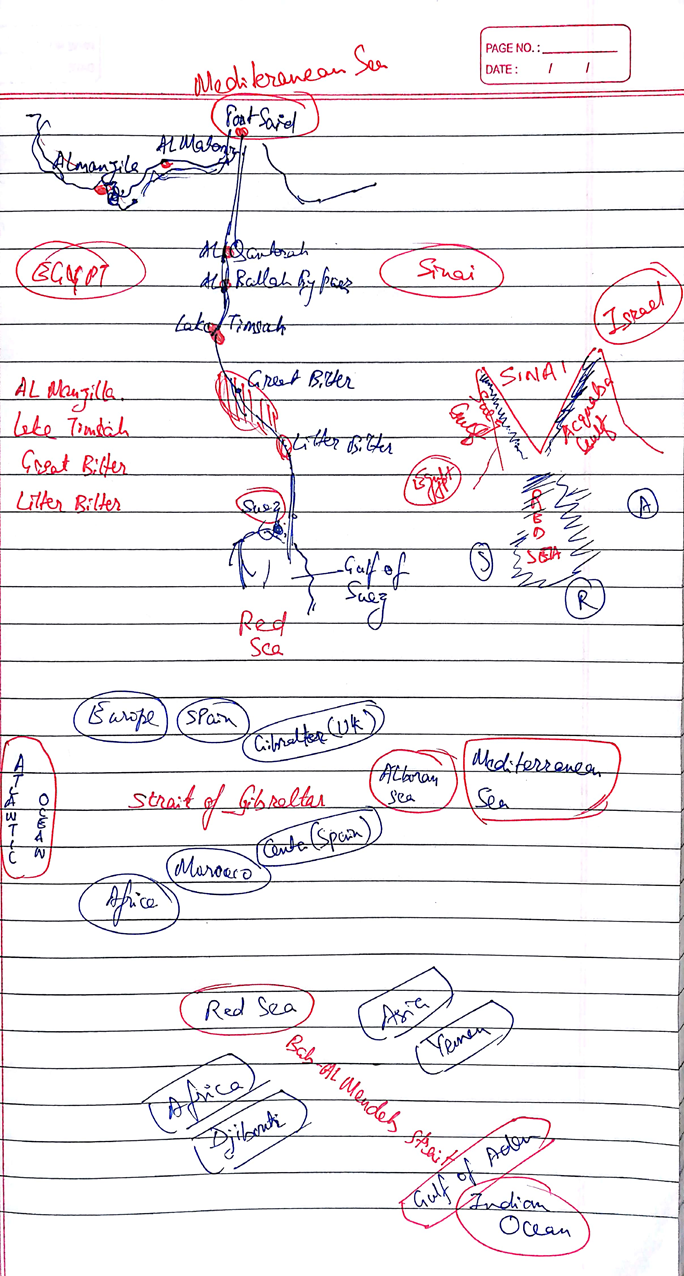 PAGE NO.:
DATE: / /
Mediterranean Sea
Port Said
AL Matariya
Almanzila
AL Qantarah
EGYPT
Sinai
AL Ballah By pass
Israel
Lake Timsah
SINAI
Great Bitter
AL Manzilla
Suez Gulf
Acquaba Gulf
Lake Timsah
Litter Bitter
Great Bitter
Egypt
Litter Bitter
Suez
RED SEA
A
S
Gulf of
Suez
R
Red
Sea
Europe
Spain
Gibralter (UK)
ATLAWTIC OCEAN
Strait of Gibraltar
Alboran
sea
Mediterranean
Sea
Ceuta (Spain)
Morocco
Africa
Red Sea
Asia
Yemen
Bab-AL Mendeb strait
Africa
Djibouti
Gulf of Aden
Indian
Ocean